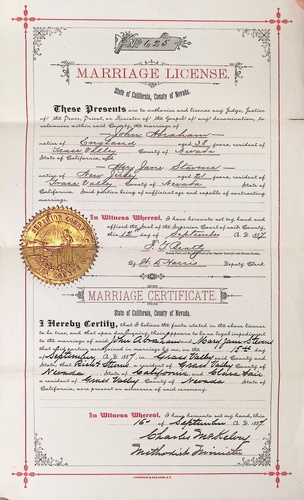 No 625
MARRIAGE LICENSE.
State of California, County of Nevada.
These Presents are to authorize and license any Judge, Justice
of the Peace, Priest, or Minister of the Gospel of any denomination, to
solemnize within said County the marriage of
John Abraham
native of England aged 38 years, resident of
Grass Valley County of Nevada
State of California, and
Mary Jane Stevens
native of New York aged 21 years, resident of
Grass Valley County of Nevada State of
California. Said parties being of sufficient age and capable of contracting
marriage.
In Witness Whereof, I have hereunto set my hand and
affixed the seal of the Superior Court of said County,
this 12 day of September A. D. 1887
By W. D. Harris Deputy Clerk
MARRIAGE CERTIFICATE.
State of California, County of Nevada.
I Hereby Certify, that I believe the facts stated in the above license
to be true, and that upon due inquiry there appears to be no legal impediment
to the marriage of said John Abraham and Mary Jane Stevens
that said parties were joined in marriage by me, on the 15th day
of September A. D. 1887, in Grass Valley County of Nevada
State of California; that a resident of Grass Valley County of
Nevada State of California and
a resident of Grass Valley County of Nevada State of
California, were present as witnesses of said ceremony.
In Witness Whereof, I have hereunto set my hand, this
16th September A. D. 1887.
Charles McKelvey
Methodist Minister